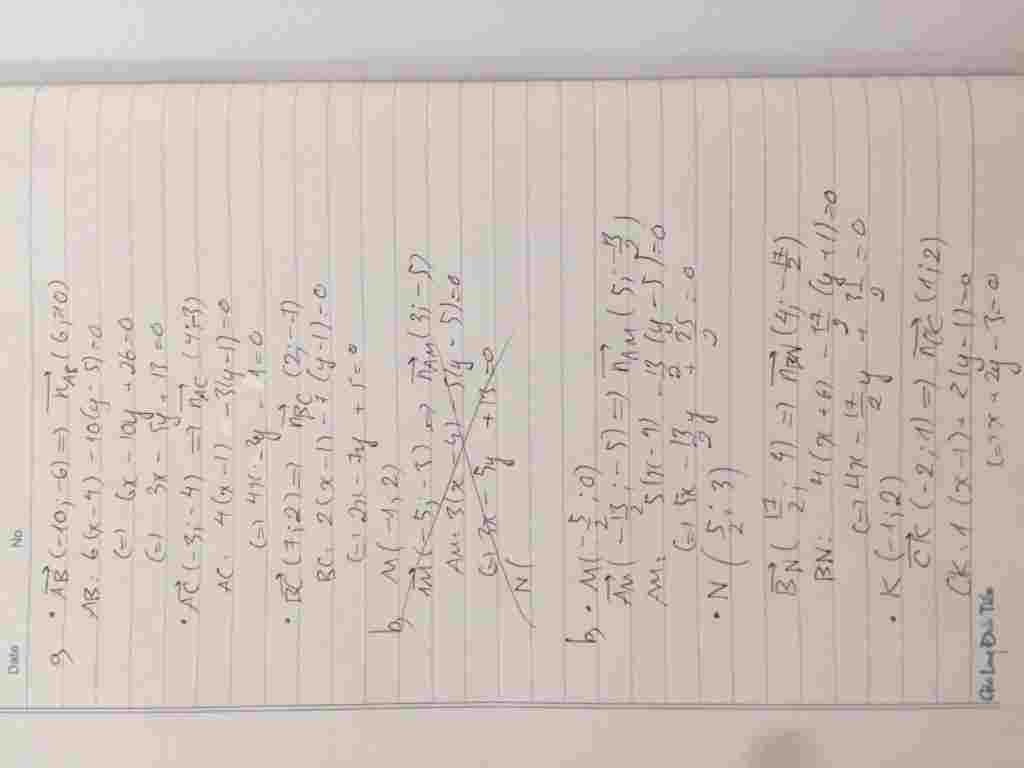 Date No
a, • AB→(-10; -6) => n→AB(6; 10)
AB: 6(x-4) - 10(y-5)=0
(=) 6x - 10y + 26=0
(=) 3x - 5y + 13 = 0
• AC→(-3; -4) => n→AC(4; -3)
AC: 4(x-1) - 3(y-1)=0
(=) 4x - 3y - 1=0
• BC→(7; 2) => n→BC(2; -7)
BC: 2(x-1) - 7(y-1)=0
(=) 2x - 7y + 5=0
b, M(-1; 2)
AM→(-5; -3) => n→AM(3; -5)
AM: 3(x-4) - 5(y-5)=0
(=) 3x - 5y + 13=0
N(
b, • M(-5/2; 0)
AM→(-13/2; -5) => n→AM(5; -13/2)
AM: 5(x-4) - 13/2(y-5)=0
(=) 5x - 13/2y + 25/2 = 0
• N(5/2; 3)
BN→(17/2; 4) => n→BN(4; -17/2)
BN: 4(x+6) - 17/2(y+1)=0
(=) 4x - 17/2y + 31/2 = 0
• K(-1; 2)
CK→(-2; 1) => n→CK(1; 2)
CK: 1(x-1) + 2(y-1)=0
(=) x + 2y - 3=0